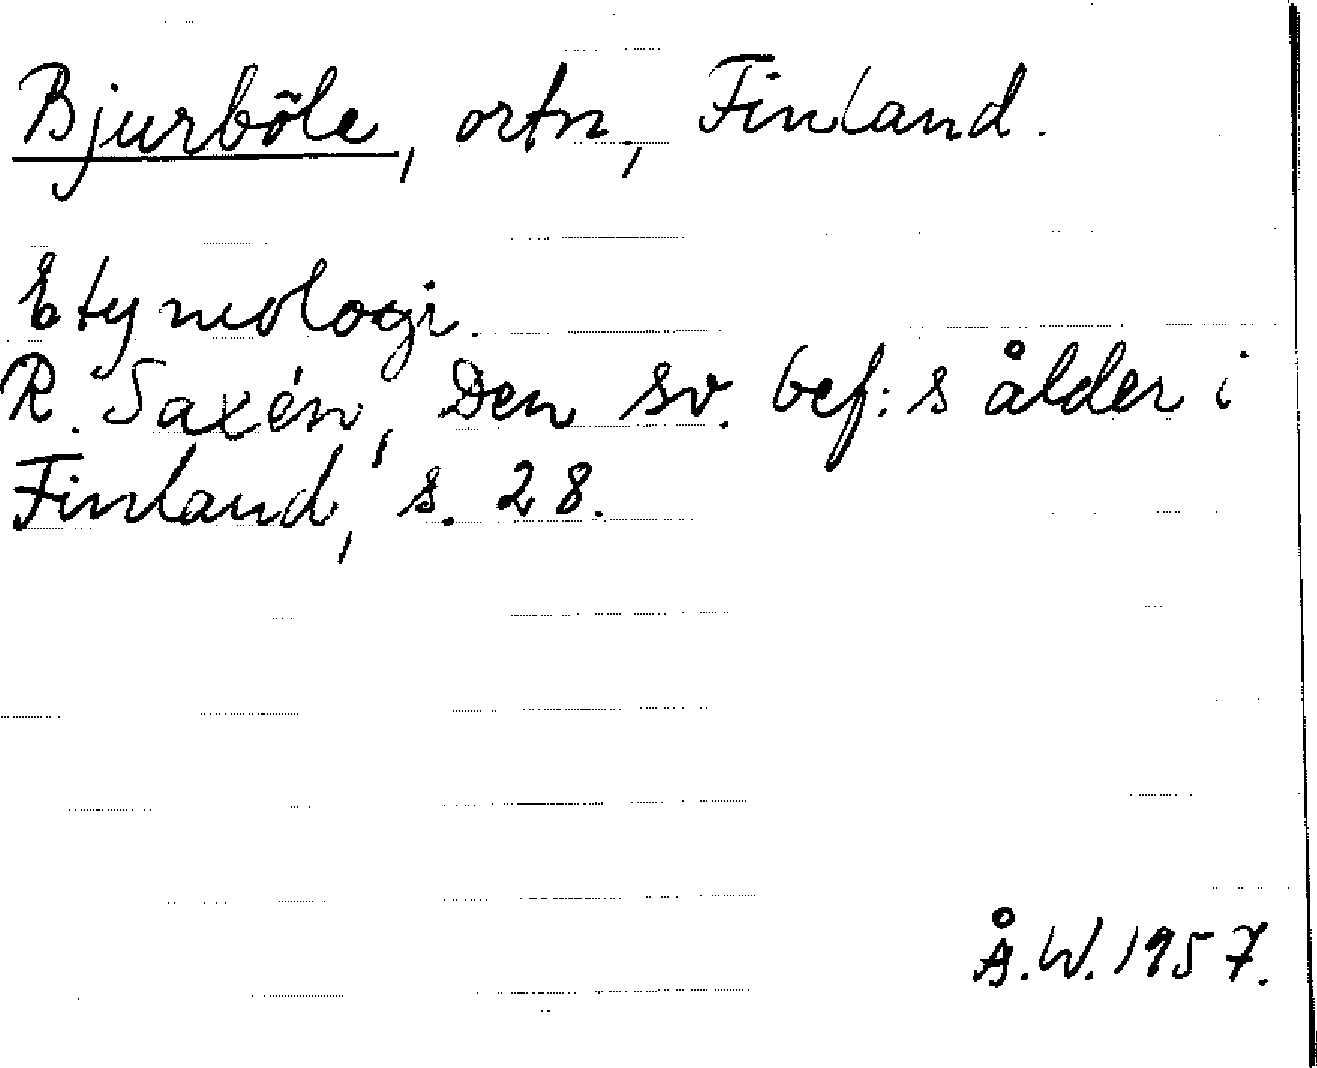 Bjurböle, ortn, Finland.
Etymologi.
R. Saxén, Den sv. bef:s ålder i
Finland, s. 28.
Å.W. 1957.